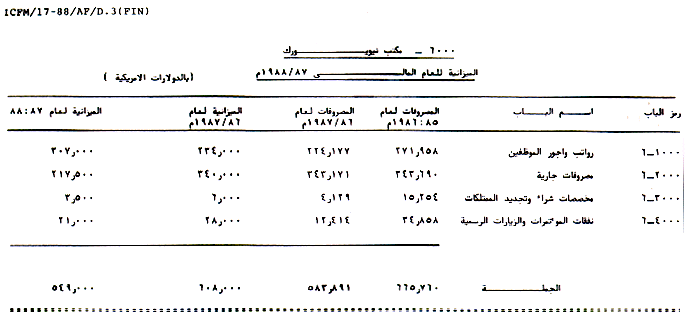 ICFM/17-88/AF/D.3(FIN)
٦٠٠٠ ـ مكتب نيويـــــورك
الميزانية للعام المالـــــى ١٩٨٨/٨٧م
(بالدولارات الامريكية )
رمز الباب اســم البــاب المصروفات لعام المصروفات لعام الميزانية لعام الميزانية لعام ٨٨:٨٧
١٩٨٦:٨٥م ١٩٨٧/٨٦م ١٩٨٧/٨٦م
٦ــ١٠٠٠ رواتب واجور الموظفين ٢٧١,٩٥٨ ٢٢٤,١٧٧ ٢٣٤,٠٠٠ ٣٠٧,٠٠٠
٦ــ٢٠٠٠ مصروفات جارية ٣٤٣,٦٩٠ ٣٤٣,١٧١ ٣٤٠,٠٠٠ ٢١٧,٥٠٠
٦ــ٣٠٠٠ مخصصات شراء وتجديد الممتلكات ١٥,٢٥٤ ٤,١٢٩ ٦,٠٠٠ ٣,٥٠٠
٦ــ٤٠٠٠ نفقات المؤتمرات والزيارات الرسمية ٣٤,٨٥٨ ١٢,٤١٤ ٢٨,٠٠٠ ٢١,٠٠٠
الجملـــــة ٦٦٥,٧٦٠ ٥٨٣,٨٩١ ٦٠٨,٠٠٠ ٥٤٩,٠٠٠